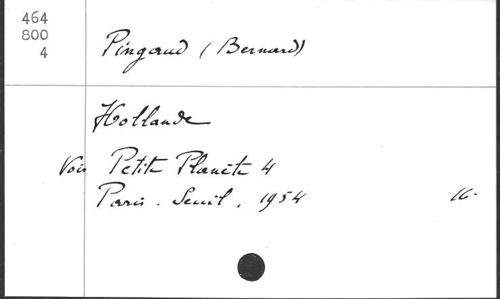 464
800
4
Pingaud (Bernard)
Hollande
Voir Petite Planète 4
Paris. Seuil, 1954 16-